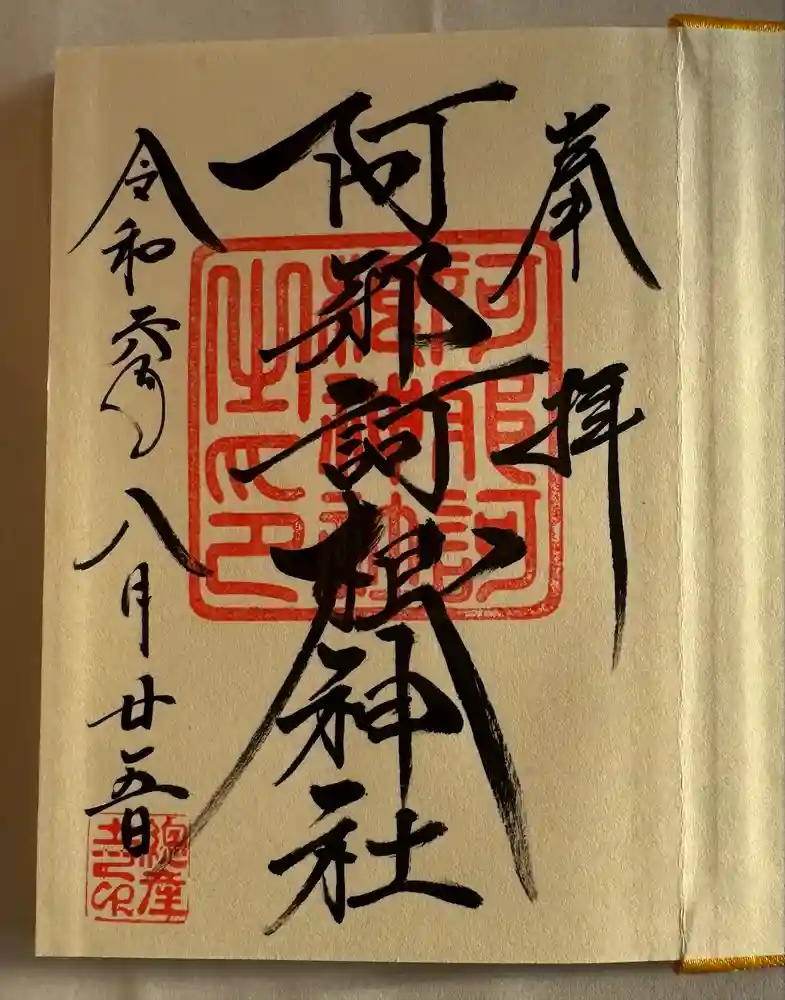 奉拝
阿邪訶根神社
令和 八月廿五日